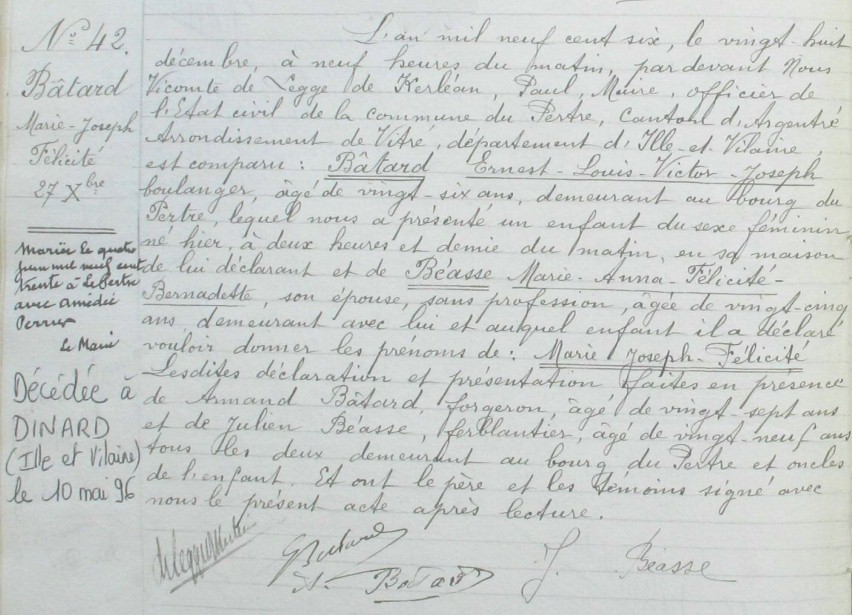 N° 42.
Bâtard
Marie-Joseph
Félicité
27 Xbre
Mariée le quatre
juin mil neuf cent
trente à Le Pertre
avec Amédée
Perrux
Le Maire
Décédée à
DINARD
(Ille et Vilaine)
le 10 mai 96
L'an mil neuf cent six, le vingt-huit
décembre, à neuf heures du matin, par devant Nous
Vicomte de Legge de Kerléan, Paul, Maire, officier de
l'Etat civil de la commune du Pertre, canton d'Argentré
Arrondissement de Vitré, département d'Ille-et-Vilaine,
est comparu : Bâtard Ernest-Louis-Victor-Joseph
boulanger, âgé de vingt-six ans, demeurant au bourg du
Pertre, lequel nous a présenté un enfant du sexe féminin
né hier, à deux heures et demie du matin, en sa maison
de lui déclarant et de Béasse Marie-Anna-Félicité-
Bernadette, son épouse, sans profession, âgée de vingt-cinq
ans, demeurant avec lui et auquel enfant il a déclaré
vouloir donner les prénoms de : Marie Joseph-Félicité
Lesdites déclaration et présentation faites en présence
de Armand Bâtard, forgeron, âgé de vingt-sept ans
et de Julien Béasse, ferblantier, âgé de vingt-neuf ans
tous les deux demeurant au bourg du Pertre et oncles
de l'enfant. Et ont le père et les témoins signé avec
nous le présent acte après lecture.
E Batard
A. Batard
J. Béasse